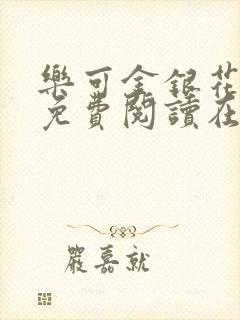 樂可金銀花
免費閱讀在
嚴嘉就